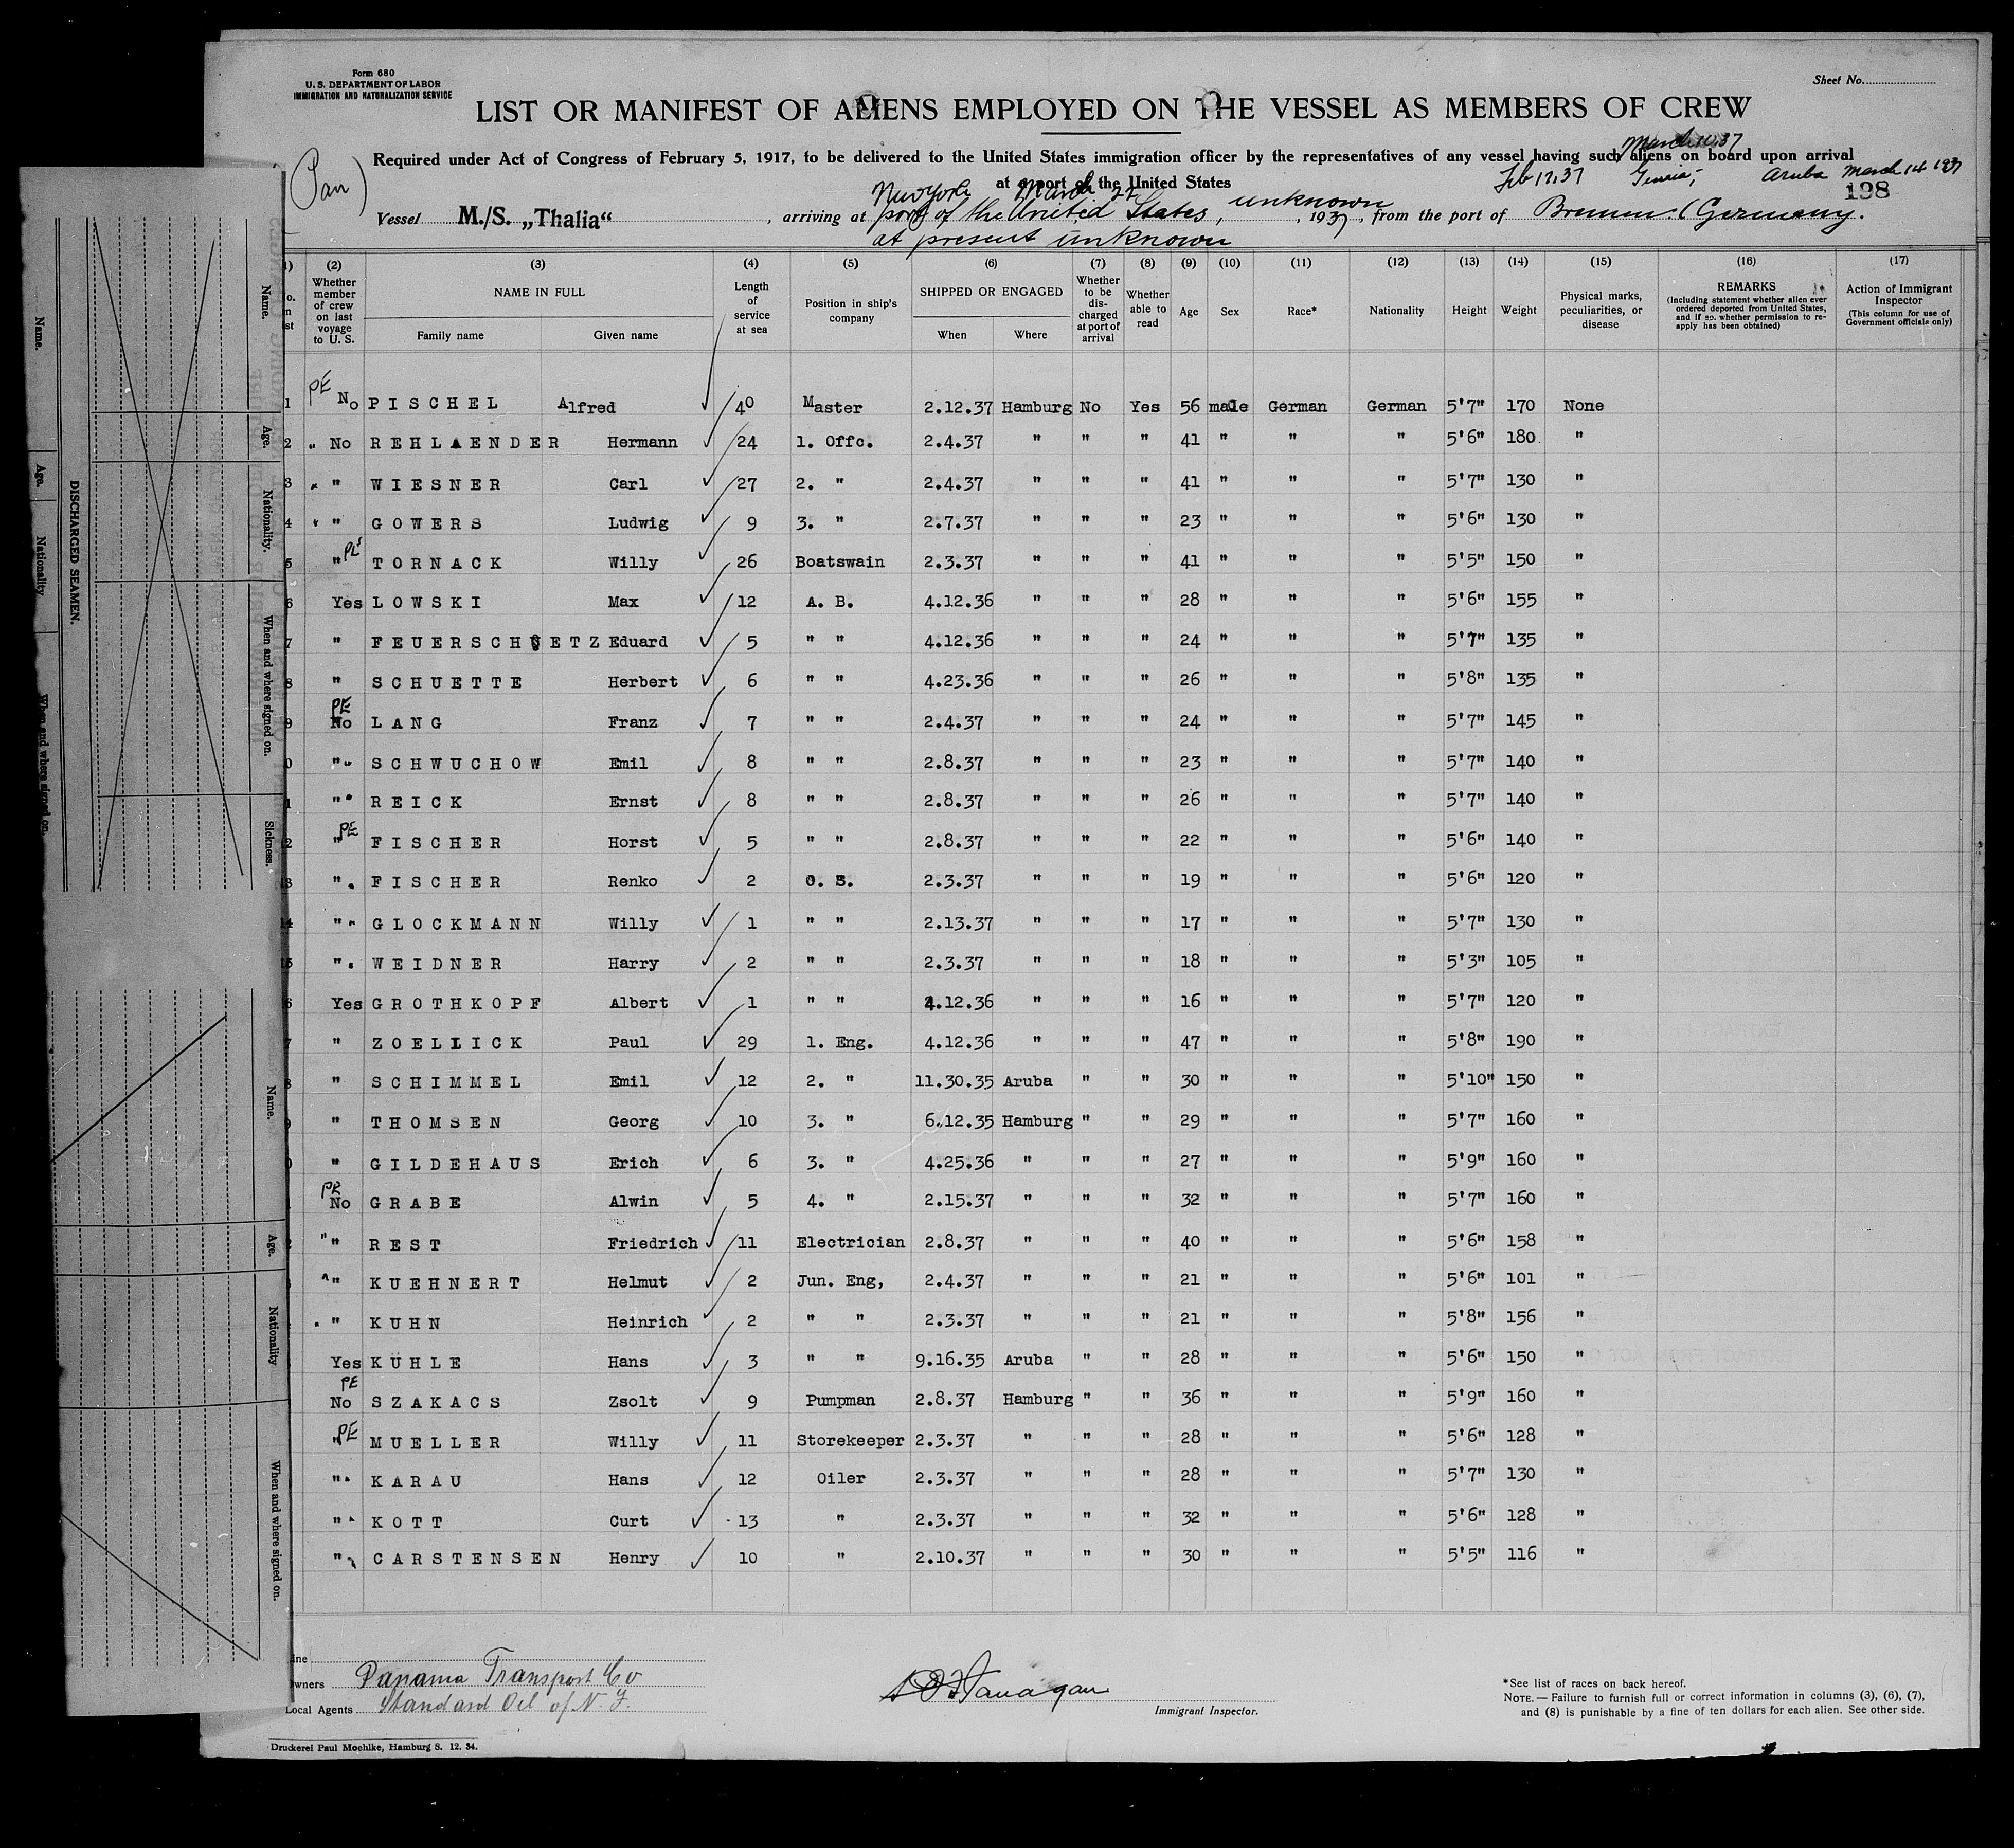 Form 680
U. S. DEPARTMENT OF LABOR
IMMIGRATION AND NATURALIZATION SERVICE
Sheet No.
LIST OR MANIFEST OF ALIENS EMPLOYED ON THE VESSEL AS MEMBERS OF CREW
Required under Act of Congress of February 5, 1917, to be delivered to the United States immigration officer by the representatives of any vessel having such aliens on board upon arrival
at a port of the United States
(Pan)
Feb 17.37
Aruba March 14 1937
198
New York March 22
Vessel M./S. „Thalia“, arriving at port of the United States, unknown, 1937, from the port of Bremen. (Germany.
at present unknown
(2) (3) (4) (5) (6) (7) (8) (9) (10) (11) (12) (13) (14) (15) (16) (17)
Whether member of crew on last voyage to U. S.
NAME IN FULL
Family name Given name
Length of service at sea
Position in ship's company
SHIPPED OR ENGAGED
When Where
Whether to be discharged at port of arrival
Whether able to read
Age
Sex
Race*
Nationality
Height
Weight
Physical marks, peculiarities, or disease
REMARKS
(Including statement whether alien ever ordered deported from United States, and if so, whether permission to re-apply has been obtained)
Action of Immigrant Inspector
(This column for use of Government officials only)
1 PE No PISCHEL Alfred 40 Master 2.12.37 Hamburg No Yes 56 male German German 5'7" 170 None
2 " No REHLAENDER Hermann 24 1. Offc. 2.4.37 " " " 41 " " " 5'6" 180 "
3 " WIESNER Carl 27 2. " 2.4.37 " " " 41 " " " 5'7" 130 "
4 " GOWERS Ludwig 9 3. " 2.7.37 " " " 23 " " " 5'6" 130 "
5 " TORNACK Willy 26 Boatswain 2.3.37 " " " 41 " " " 5'5" 150 "
6 Yes LOWSKI Max 12 A. B. 4.12.36 " " " 28 " " " 5'6" 155 "
7 " FEUERSCHUETZ Eduard 5 " " 4.12.36 " " " 24 " " " 5'7" 135 "
8 " SCHUETTE Herbert 6 " " 4.23.36 " " " 26 " " " 5'8" 135 "
9 PE No LANG Franz 7 " " 2.4.37 " " " 24 " " " 5'7" 145 "
0 " " SCHWUCHOW Emil 8 " " 2.8.37 " " " 23 " " " 5'7" 140 "
1 " " REICK Ernst 8 " " 2.8.37 " " " 26 " " " 5'7" 140 "
2 PE " FISCHER Horst 5 " " 2.8.37 " " " 22 " " " 5'6" 140 "
3 " FISCHER Renko 2 O. S. 2.3.37 " " " 19 " " " 5'6" 120 "
4 " " GLOCKMANN Willy 1 " " 2.13.37 " " " 17 " " " 5'7" 130 "
5 " WEIDNER Harry 2 " " 2.3.37 " " " 18 " " " 5'3" 105 "
6 Yes GROTHKOPF Albert 1 " " 4.12.36 " " " 16 " " " 5'7" 120 "
7 " ZOELLICK Paul 29 1. Eng. 4.12.36 " " " 47 " " " 5'8" 190 "
8 " SCHIMMEL Emil 12 2. " 11.30.35 Aruba " " 30 " " " 5'10" 150 "
9 " THOMSEN Georg 10 3. " 6.12.35 Hamburg " " 29 " " " 5'7" 160 "
0 " GILDEHAUS Erich 6 3. " 4.25.36 " " " 27 " " " 5'9" 160 "
PE No GRABE Alwin 5 4. " 2.15.37 " " " 32 " " " 5'7" 160 "
" " REST Friedrich 11 Electrician 2.8.37 " " " 40 " " " 5'6" 158 "
" " KUEHNERT Helmut 2 Jun. Eng, 2.4.37 " " " 21 " " " 5'6" 101 "
" KUHN Heinrich 2 " " 2.3.37 " " " 21 " " " 5'8" 156 "
Yes KÜHLE Hans 3 " " 9.16.35 Aruba " " 28 " " " 5'6" 150 "
PE No SZAKACS Zsolt 9 Pumpman 2.8.37 Hamburg " " 36 " " " 5'9" 160 "
PE " MUELLER Willy 11 Storekeeper 2.3.37 " " " 28 " " " 5'6" 128 "
" " KARAU Hans 12 Oiler 2.3.37 " " " 28 " " " 5'7" 130 "
" " KOTT Curt 13 " 2.3.37 " " " 32 " " " 5'6" 128 "
" CARSTENSEN Henry 10 " 2.10.37 " " " 30 " " " 5'5" 116 "
ine
wners Panama Transport Co
Local Agents Standard Oil of N. J.
Immigrant Inspector.
*See list of races on back hereof.
NOTE.— Failure to furnish full or correct information in columns (3), (6), (7),
and (8) is punishable by a fine of ten dollars for each alien. See other side.
Druckerei Paul Moehlke, Hamburg 8. 12. 34.
DISCHARGED SEAMEN.
Name. Age. Nationality When and where signed on.
Name. Age. Nationality. When and where signed on. Sickness.
Name. Age. Nationality When and where signed on.